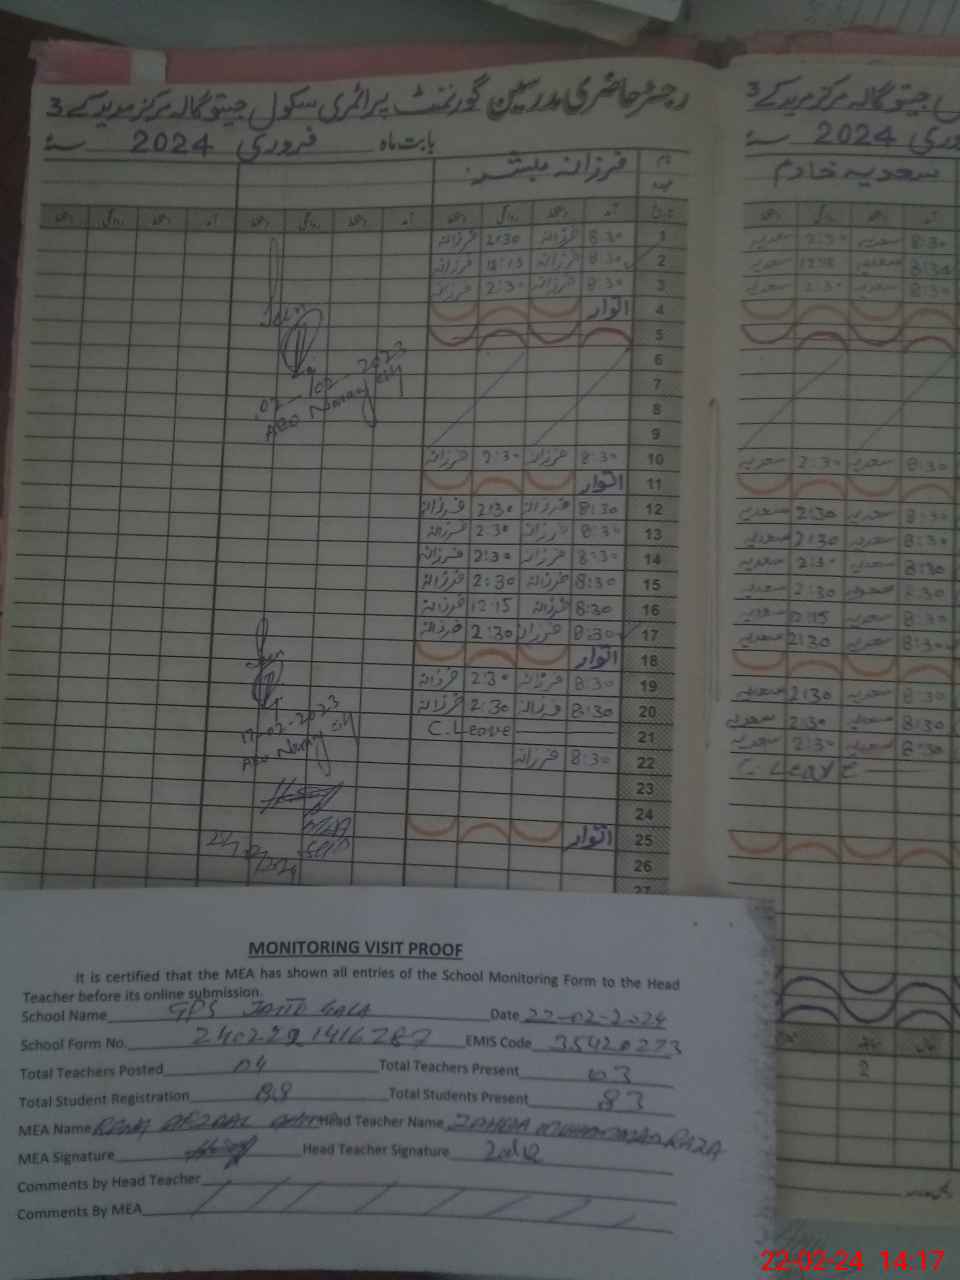 رجسٹر حاضری مدرسین گورنمنٹ پرائمری سکول جیتو گالہ مرکز مریدکے 3
بابت ماہ فروری 2024
فرزانہ مبشر
1 8:30 فرزانہ 2:30 فرزانہ
2 8:30 فرزانہ 12:15 فرزانہ
3 8:30 فرزانہ 2:30 فرزانہ
4 اتوار
5
6
7
8
9
10 8:30 فرزانہ 2:30 فرزانہ
11 اتوار
12 8:30 فرزانہ 2:30 فرزانہ
13 8:30 فرزانہ 2:30 فرزانہ
14 8:30 فرزانہ 2:30 فرزانہ
15 8:30 فرزانہ 2:30 فرزانہ
16 8:30 فرزانہ 12:15 فرزانہ
17 8:30 فرزانہ 2:30 فرزانہ
18 اتوار
19 8:30 فرزانہ 2:30 فرزانہ
20 8:30 فرزانہ 2:30 فرزانہ
21 C.Leave
22 8:30 فرزانہ
23
24
25 اتوار
26
27
02-02-2023
AEO Narang City
17-02-2023
AEO Narang City
MEA
جیتو گالہ مرکز مریدکے 3
2024
سعدیہ خادم
8:30 سعدیہ 2:30 سعدیہ
8:30 سعدیہ 12:15 سعدیہ
8:30 سعدیہ 2:30 سعدیہ
8:30 سعدیہ 2:30 سعدیہ
8:30 سعدیہ 2:30 سعدیہ
8:30 سعدیہ 2:30 سعدیہ
8:30 سعدیہ 2:30 سعدیہ
سعدیہ 2:30 سعدیہ
8:30 سعدیہ سعدیہ
8:30 سعدیہ 2:30 سعدیہ
8:30 سعدیہ 2:30 سعدیہ
8:30 سعدیہ 2:30 سعدیہ
8:30 سعدیہ 2:30 سعدیہ
C.Leave
2
MONITORING VISIT PROOF
It is certified that the MEA has shown all entries of the School Monitoring Form to the Head
Teacher before its online submission.
School Name GPS JATTO GALA Date 22-02-2024
School Form No. 2402291416287 EMIS Code 35420273
Total Teachers Posted 04 Total Teachers Present 03
Total Student Registration 88 Total Students Present 83
MEA Name RANA AFZAAL Head Teacher Name MUHAMMAD RAZA
MEA Signature Head Teacher Signature
Comments by Head Teacher
Comments By MEA
22-02-24 14:17